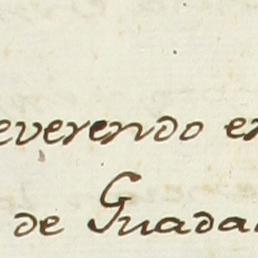 everendo en
de Guada